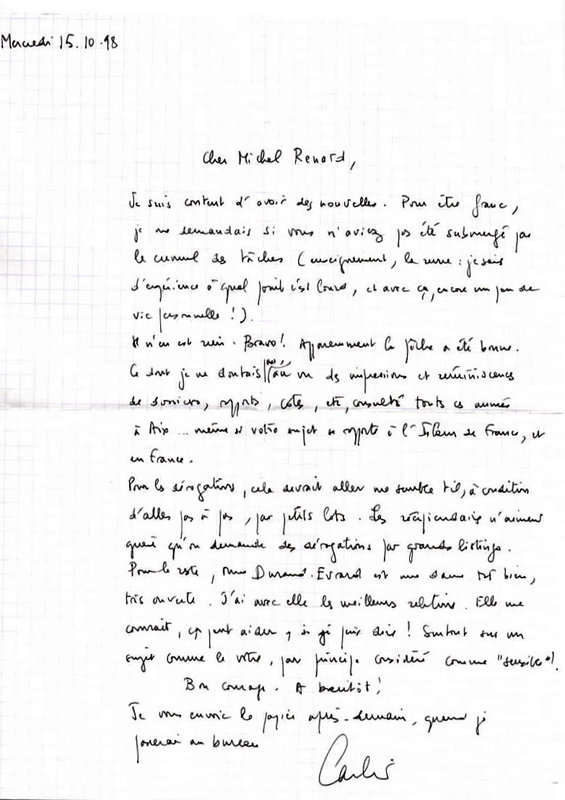 Mercredi 15.10.98
Cher Michel Renard,
Je suis content d'avoir des nouvelles. Pour être franc,
je me demandais si vous n'aviez pas été submergé par
le cumul des tâches (enseignement, la revue : je sais
d'expérience à quel point c'est lourd, et avec ça, encore un peu de
vie personnelle !).
Il n'en est rien. Bravo ! Apparemment la pêche a été bonne.
Ce dont je me doutais au vu des impressions et réminiscences
de dossiers, rapports, cotes, etc, consultés toutes ces années
à Aix ... même si votre sujet se rapporte à l'Islam de France, et
en France.
Pour les dérogations, cela devrait aller me semble t'il, à condition
d'aller pas à pas, par petits lots. Les récipiendaires n'aiment
guère qu'on demande des dérogations par grands listings.
Pour le reste, Mme Durand-Evrard est une dame très bien,
très ouverte. J'ai avec elle les meilleurs relations. Elle me
connait, ça peut aider, si je puis dire ! Surtout sur un
sujet comme le vôtre, par principe considéré comme "sensible" !
Bon courage. A bientôt !
Je vous envoie le papier après-demain, quand je
passerai au bureau